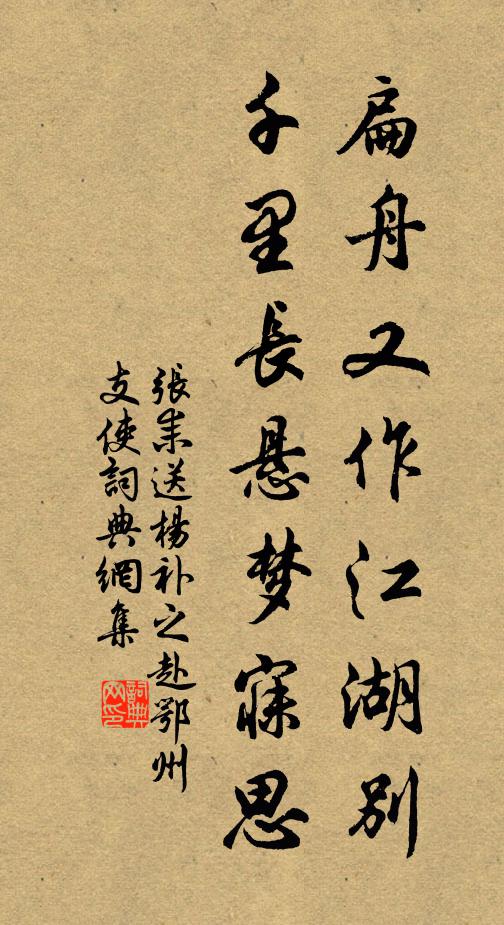 扁舟又作江湖別
千里長悬梦寐思
張耒送楊补之赴鄂州
支使詞典網集
詞典
网印